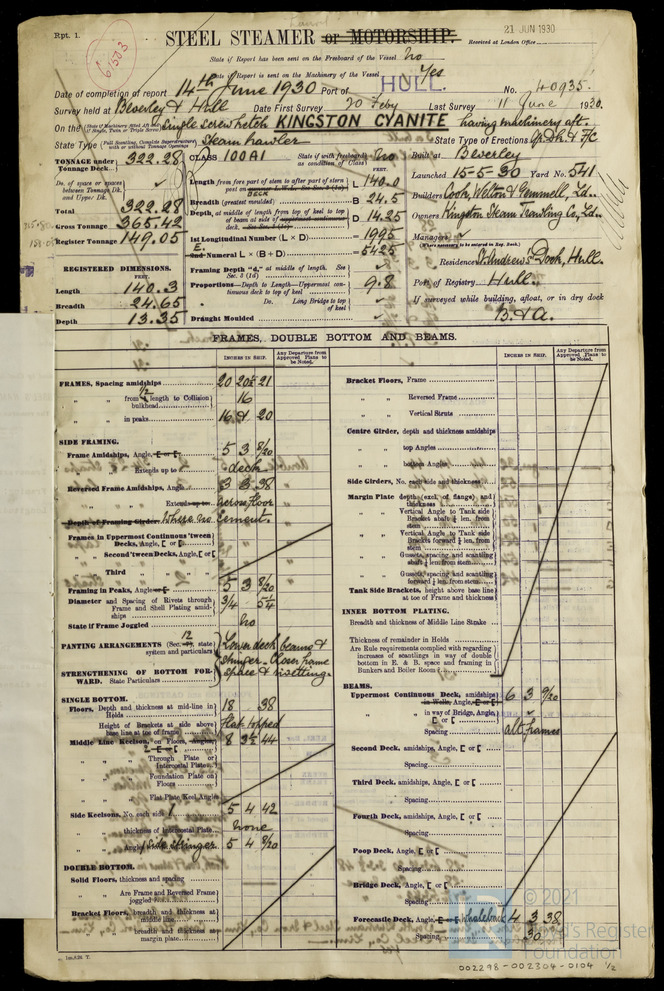 Rpt. 1.
61503
21 JUN 1930
STEEL STEAMER or MOTORSHIP.
Received at London Office
State if Report has been sent on the Freeboard of the Vessel No
State if Report is sent on the Machinery of the Vessel Yes
Date of completion of report 14th June 1930 Port of HULL. No. 40935.
Survey held at Beverley & Hull Date First Survey 20 Feby Last Survey 11 June 1930.
On the Single screw ketch KINGSTON CYANITE having machinery aft.
State Type Steam trawler State Type of Erections
TONNAGE under Tonnage Deck 322.28
Do. of space or spaces between Tonnage Dk. and Upper Dk.
Total 322.28
Gross Tonnage 365.42
Register Tonnage 149.05
REGISTERED DIMENSIONS.
FEET.
Length 140.3
Breadth 24.65
Depth 13.35
CLASS 100A1 State if with freeboard as condition of Class No
FEET.
L 140.0
Breadth (greatest moulded) B 24.5
Depth, at middle of length from top of keel to top of beam at side of D 14.25
1st Longitudinal Number (L × D) = 1995
2nd Numeral L × (B + D) = 5425
Framing Depth "d," at middle of length. See Sec. 3 (1d)
Proportions—Depth to Length—Uppermost continuous deck to top of keel 9.8
Do. Long Bridge to top of keel
Draught Moulded
Built at Beverley
Launched 15-5-30 Yard No. 541
Builders Cook, Welton & Gemmell, Ld.
Owners Kingston Steam Trawling Co, Ld.
Managers
(Where necessary to be entered in Reg. Book)
Residence St. Andrew's Dock, Hull.
Port of Registry Hull.
If surveyed while building, afloat, or in dry dock
B. & A.
FRAMES, DOUBLE BOTTOM AND BEAMS.
INCHES IN SHIP.
Any Departure from Approved Plans to be Noted.
INCHES IN SHIP.
Any Departure from Approved Plans to be Noted.
FRAMES, Spacing amidships 20 20½ 21
" " from ½ length to Collision bulkhead 16
" " in peaks 16 & 20
SIDE FRAMING.
Frame Amidships, Angle, E or [ 5 3 8/20
" " Extends up to deck
Reversed Frame Amidships, Angle 3 3 .38
" " Extends up to across floor
Depth of Framing Girder. Where no cement.
Frames in Uppermost Continuous 'tween Decks, Angle, [ or [
" " Second 'tween Decks, Angle, [ or [
" " Third " "
Framing in Peaks, Angle or [ 5 3 8/20
Diameter and Spacing of Rivets through Frame and Shell Plating amidships 3/4 5¼
State if Frame Joggled No
PANTING ARRANGEMENTS (Sec. 12, state system and particulars
Lower deck beams & stringer. Closer frame space & riveting.
STRENGTHENING OF BOTTOM FORWARD. State Particulars
SINGLE BOTTOM.
Floors, Depth and thickness at mid-line in Holds 18 .38
Height of Brackets at side above base line at toe of frame flat topped
Middle Line Keelson, on Floors, Angles, 8 3½ .44
" " Through Plate or Intercostal Plate
" " Foundation Plate on Floors
" " Flat Plate Keel Angles
Side Keelsons, No. each side 1 5 4 .42
" " thickness of Intercostal Plate none
" " Angles Side Stringer 5 4 9/20
DOUBLE BOTTOM.
Solid Floors, thickness and spacing
" " Are Frame and Reversed Frame joggled
Bracket Floors, breadth and thickness at middle line
" " breadth and thickness at margin plate
Bracket Floors, Frame
" " Reversed Frame
" " Vertical Struts
Centre Girder, depth and thickness amidships
" " top Angles
" " bottom Angles
Side Girders, No. each side and thickness
Margin Plate depth (excl. of flange) and thickness
" " Vertical Angle to Tank side Bracket abaft ¼ len. from stem
" " Vertical Angle to Tank side Bracket forward ¼ len. from stem
" " Gussets, spacing and scantling abaft ¼ len. from stem
" " Gussets, spacing and scantling forward ¼ len. from stem
Tank Side Brackets, height above base line at toe of Frame and thickness
INNER BOTTOM PLATING.
Breadth and thickness of Middle Line Strake
Thickness of remainder in Holds
Are Rule requirements complied with regarding increases of scantlings in way of double bottom in E. & B. space and framing in Bunkers and Boiler Room
BEAMS.
Uppermost Continuous Deck, amidships 6 3 9/20
in Wells, Angle, E or [
" " in way of Bridge, Angle, [ or [
Spacing alt frames
Second Deck, amidships, Angle, [ or [
Spacing
Third Deck, amidships, Angle, [ or [
Spacing
Fourth Deck, amidships, Angle, [ or [
Spacing
Poop Deck, Angle, [ or [
Spacing
Bridge Deck, Angle, [ or [
Spacing
Forecastle Deck, Angle, E or [ Whaleback 4 3 .38
Spacing 30
© 2021
Lloyd's Register
Foundation
002298-002304-0104 1/2